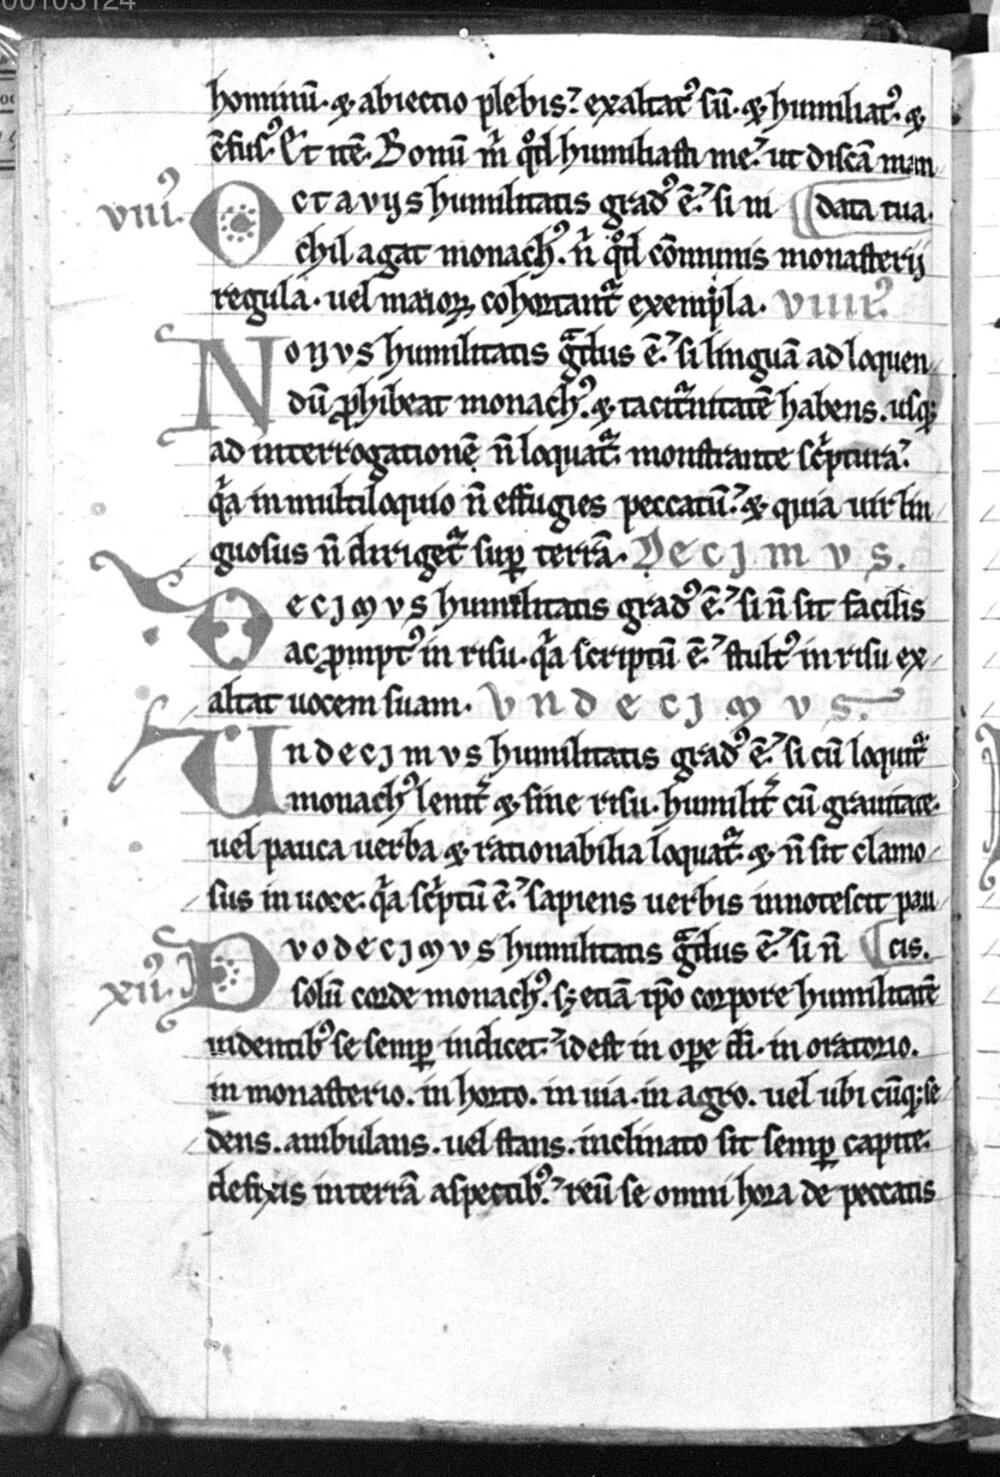 00105124
hominū. & abiectio plebis. exaltatꝰ sū. & humiliatꝰ. &
ꝯfusꝰ. Et itē. Bonū m̄ qd̄ humiliasti me. ut discā man
viiiꝰ. Octavus humilitatis gradꝰ ē. si ni data tua.
chil agat monachꝰ. n̄ qd̄ cōmunis monasterij
regula. uel maioꝝ cohortant̄ exempla. viiiiꝰ.
Nonus humilitatis gͣdus ē. si linguā ad loquen
dū ꝓhibeat monachꝰ. & taciturnitatē habens. usq;
ad interrogationē n̄ loquat̄. monstrante scͥptura.
qͥa in multiloquio n̄ effugies peccatū. & quia uir lin
guosus n̄ diriget̄ suꝑ terrā. Decimus.
Decimus humilitatis gradꝰ ē. si n̄ sit facilis
ac ꝓmptꝰ in risu. qͥa scriptū ē. stultꝰ in risu ex
altat uocem suam. Vndecimus.
Undecimus humilitatis gradꝰ ē. si cū loquit̄
monachꝰ lenit̄ & sine risu. humilit̄ cū grauitate.
uel pauca uerba & rationabilia loquat̄. & n̄ sit clamo
sus in uoce. qͥa scͥptū ē. sapiens uerbis innotescit pau
xiiꝰ. Dvodecimus humilitatis gͣdus ē. si n̄ cis.
solū corde monachꝰ. sꝫ etiā ip̄o corpore humilitatē
uidentibꝰ se semꝑ indicet. id est in oꝑe di. in oratorio.
in monasterio. in horto. in uia. in agro. uel ubi cūq; se
dens. ambulans. uel stans. inclinato sit semꝑ capite.
defixis in terrā aspectibꝰ. reū se omni hora de peccatis